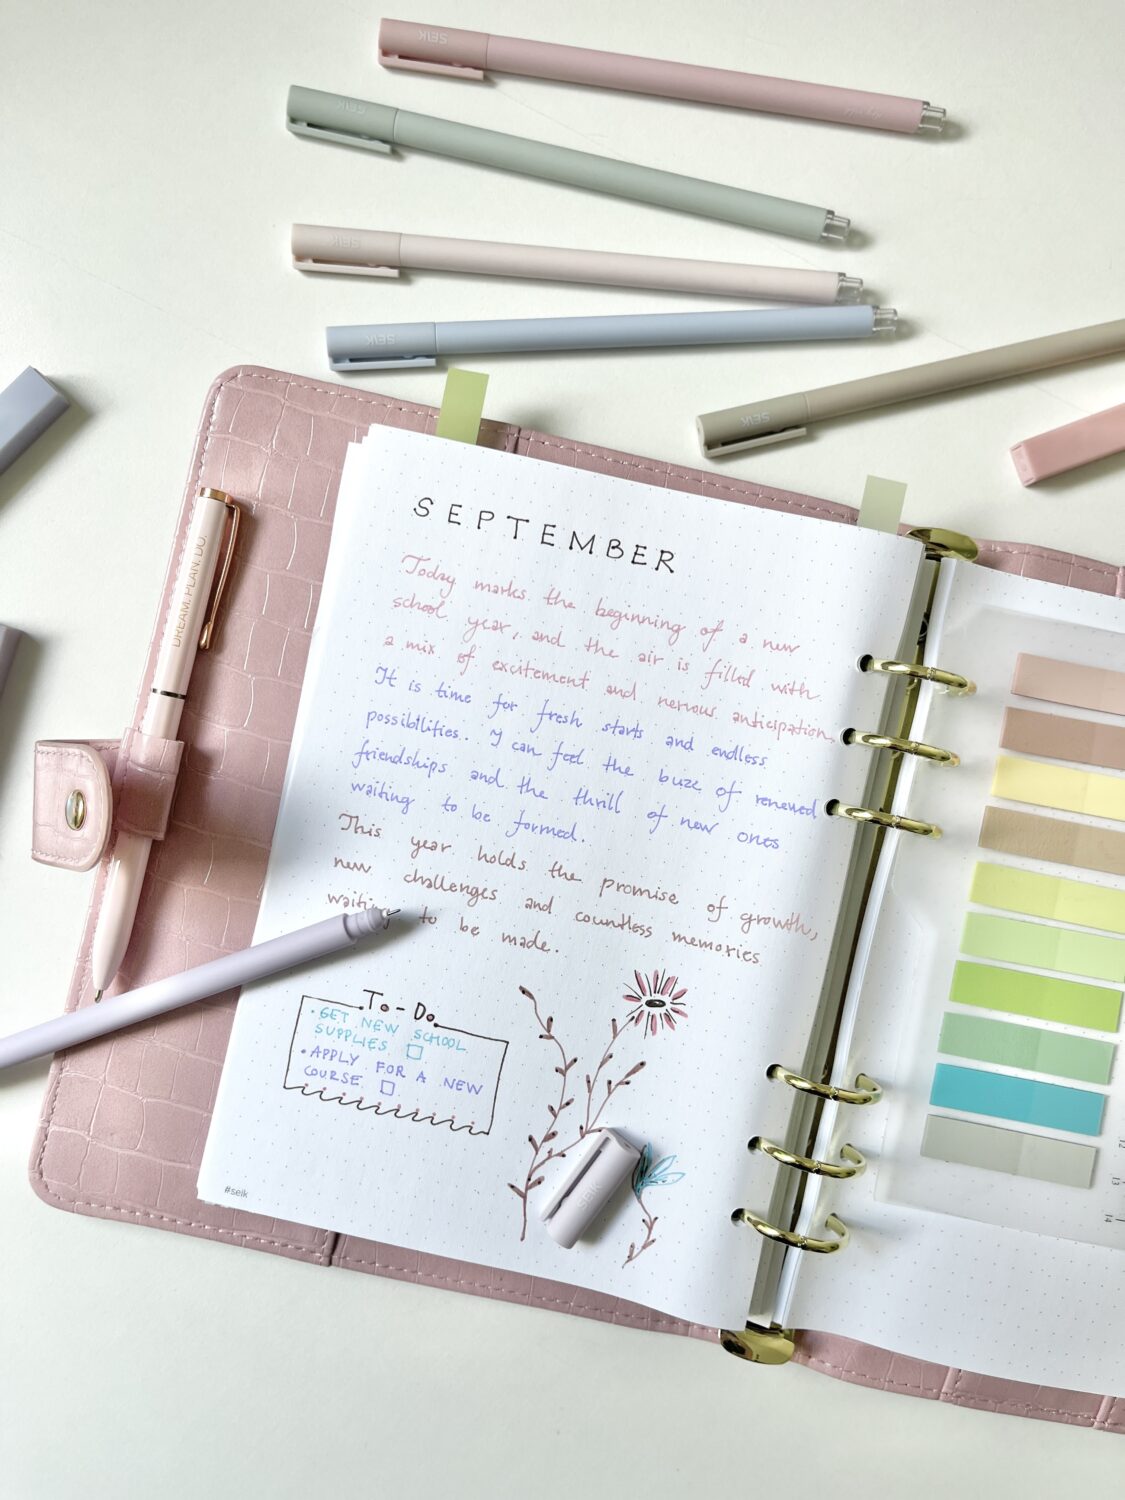 SEIK
SEIK
SEIK
SEIK
SEIK
DREAM. PLAN. DO.
SEPTEMBER
Today marks the beginning of a new
school year, and the air is filled with
a mix of excitement and nervous anticipation.
It is time for fresh starts and endless
possibilities. I can feel the buzz of renewed
friendships and the thrill of new ones
waiting to be formed.
This year holds the promise of growth,
new challenges and countless memories
waiting to be made.
To-Do
• GET NEW SCHOOL
SUPPLIES
• APPLY FOR A NEW
COURSE
SEIK
#seik
12
13
14